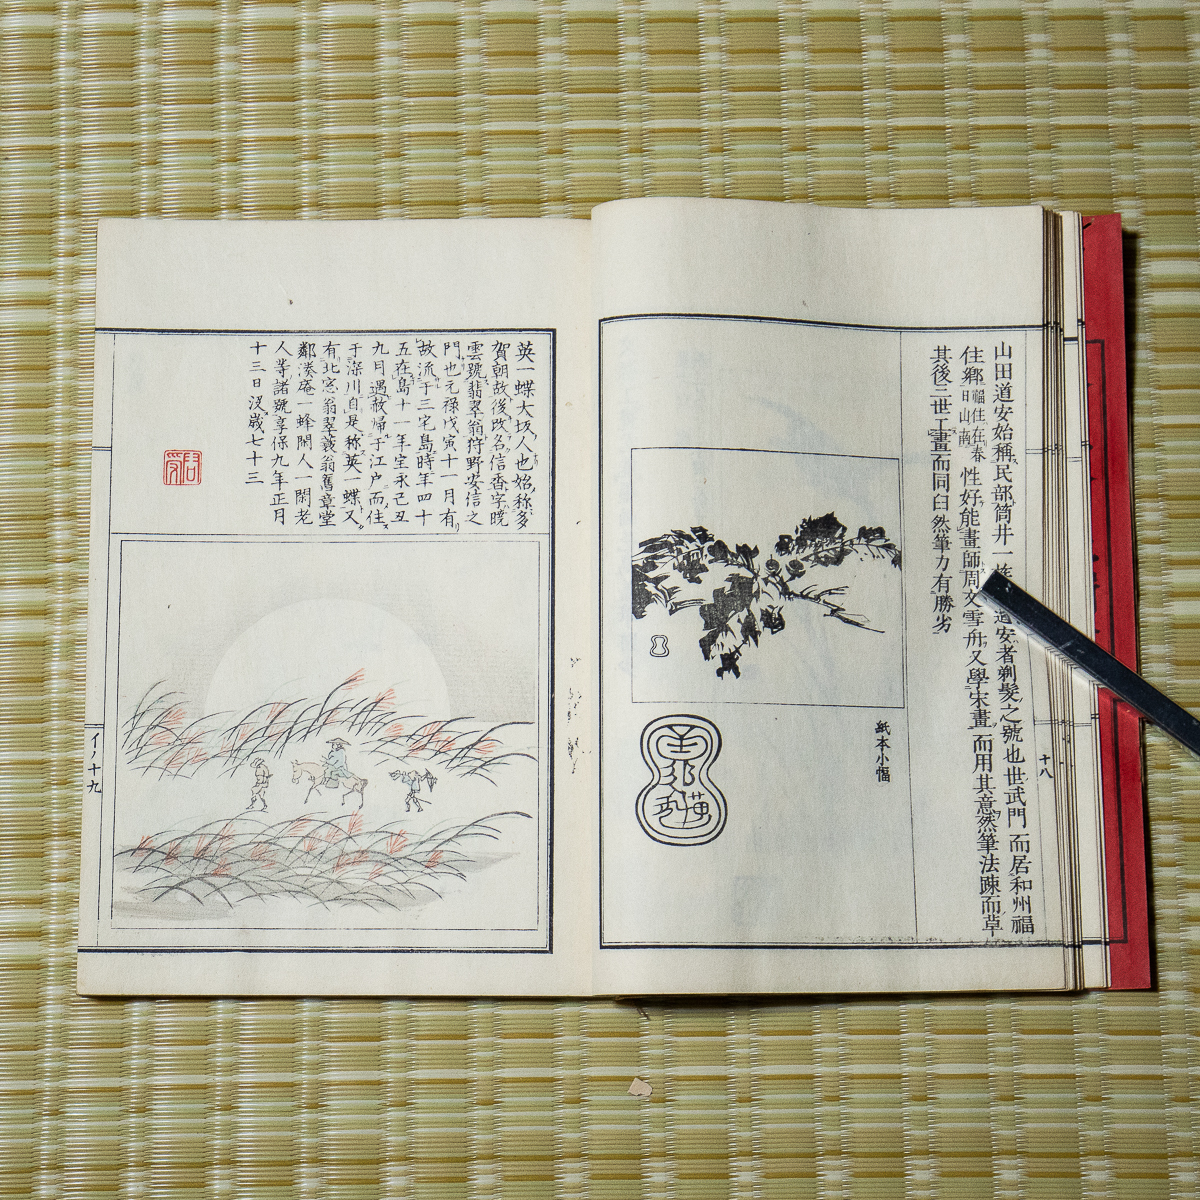 山田道安始稱民部筒井一族道安者剃髮之號也世武門而居和州福
住鄉福住在春日山南性好能畫師周文雪舟又學宋畫而用其意然筆法踈而草
其後三世工畫而同臼然筆力有勝劣
紙本小幅
十八
英一蝶大坂人也始称多
賀朝故後改名信香字暁
雲號翡翠翁狩野安信之
門也元禄戊寅十一月有
故流于三宅島時年四十
五在島十一年宝永己丑
九月遇赦帰于江戸而住
于深川自是称英一蝶又
有北窓翁翠蓑翁舊章堂
鄰湊庵一蜂閒人一閑老
人等諸號享保九年正月
十三日没歳七十三
イノ十九